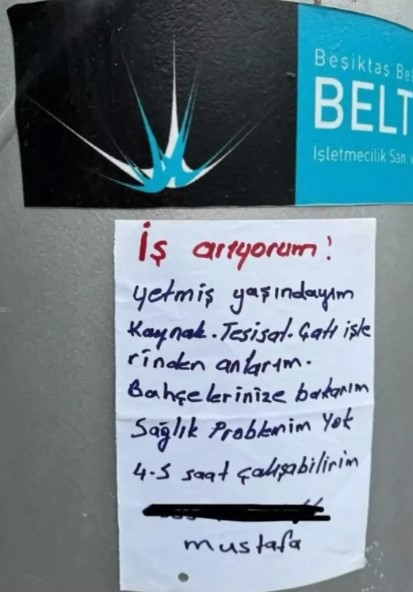 Beşiktaş Be
BELT
İşletmecilik San v
İş arıyorum!
yetmiş yaşındayım
Kaynak. Tesisat. Çatı işle
rinden anlarım.
Bahçelerinize bakarım
Sağlık Problemim Yok
4-5 saat çalışabilirim
mustafa